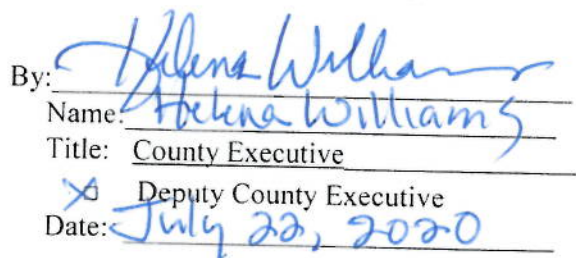 By: Helena Williams
Name: Helena Williams
Title: County Executive
☒ Deputy County Executive
Date: July 22, 2020